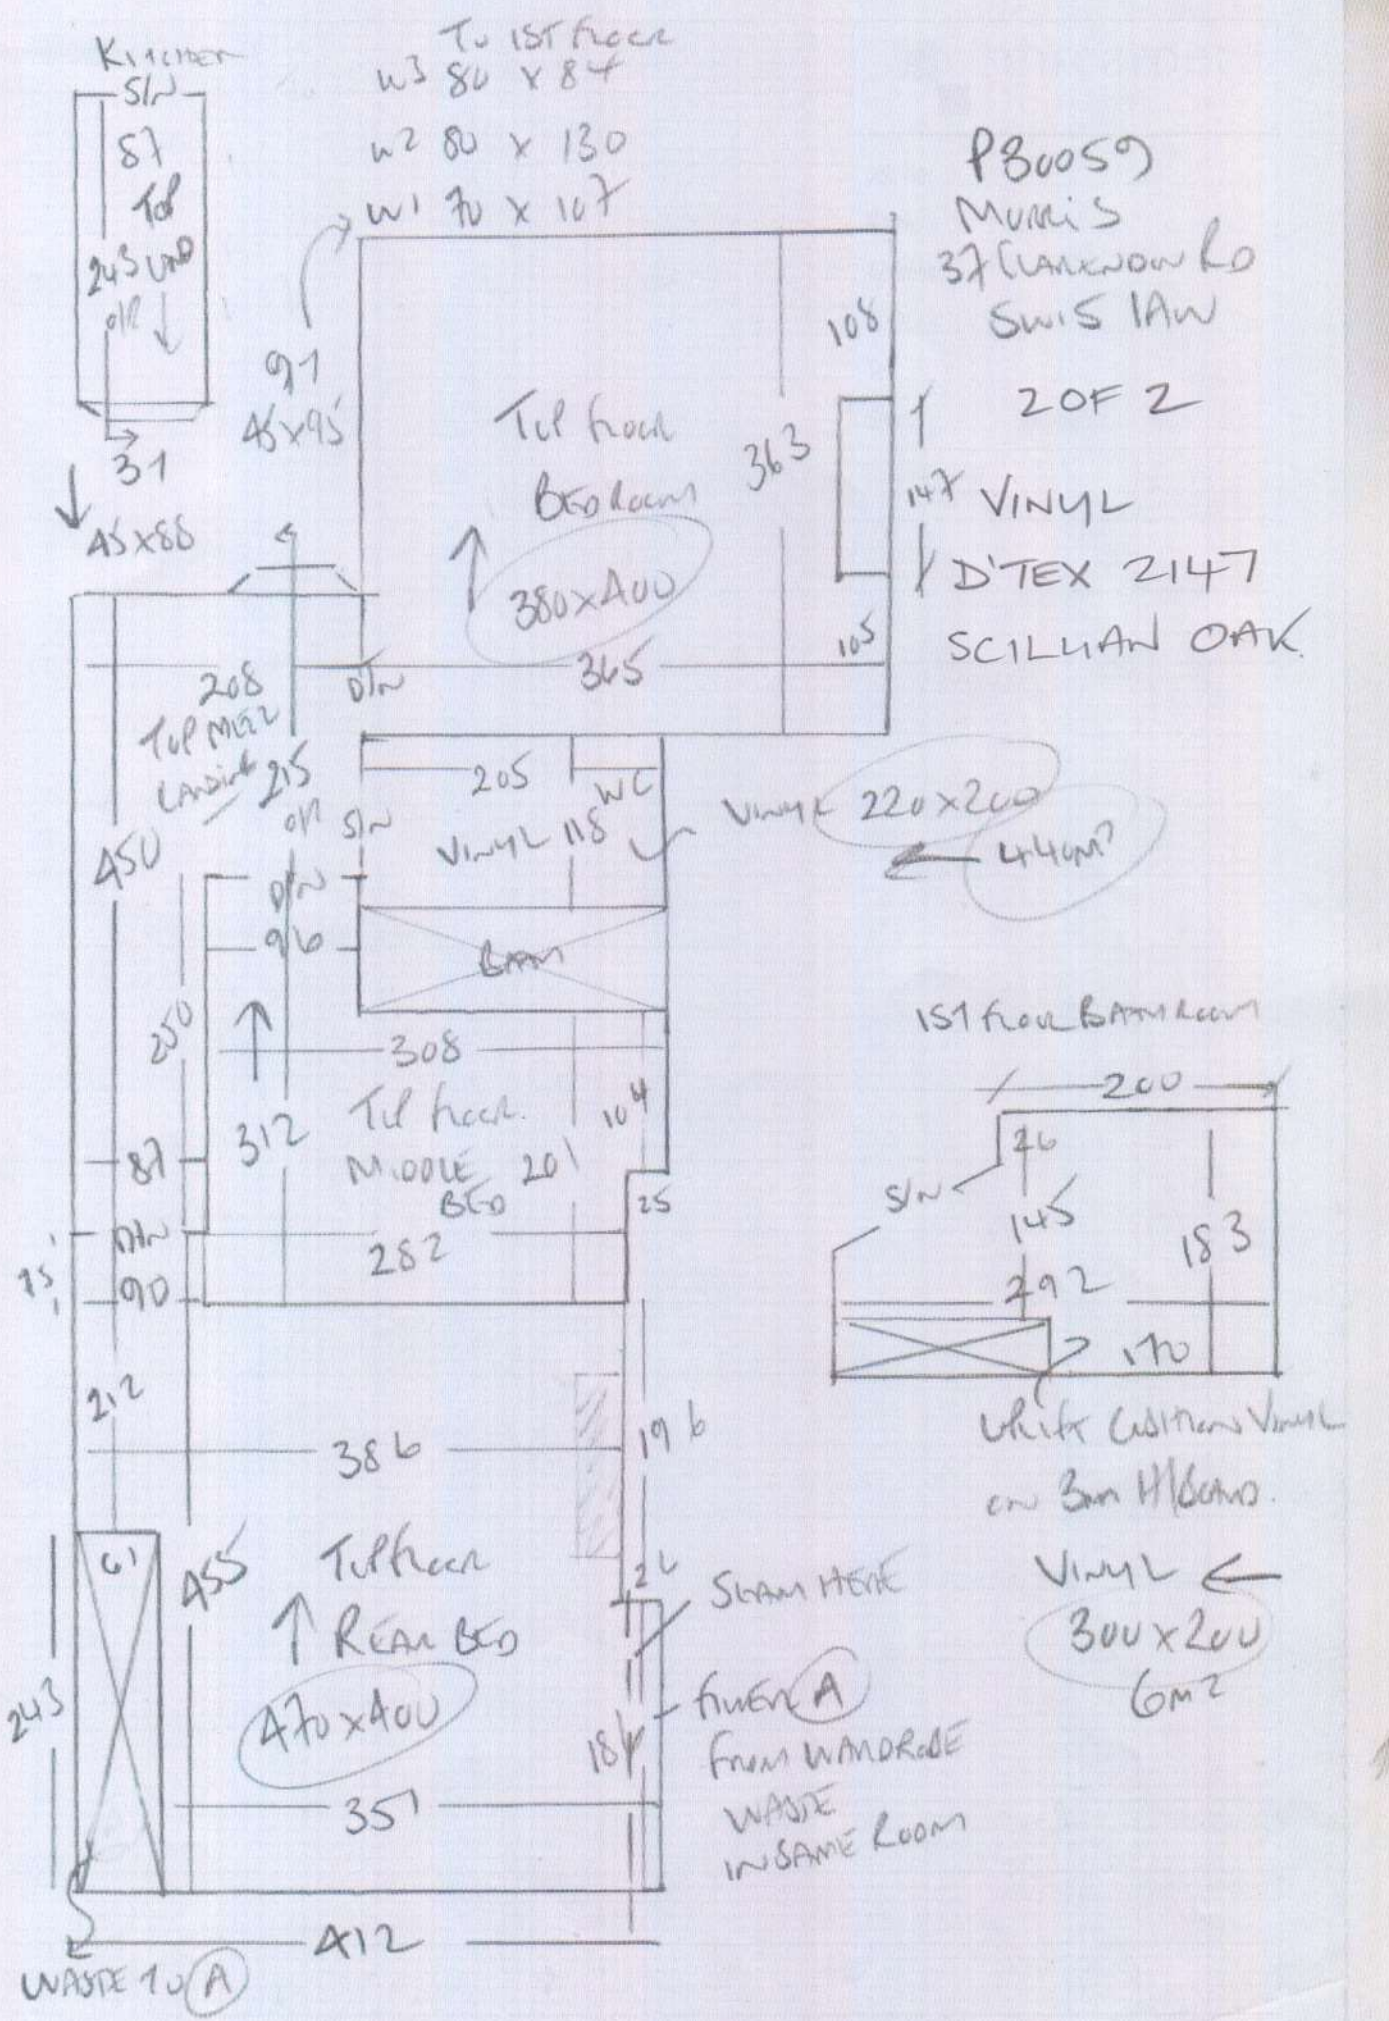 KITCHEN
S/N
87
TOP
243 UND
O/R
31
45X88
TO 1ST FLOOR
W3 80 X 84
W2 80 X 130
W1 70 X 107
91
45X95
P30059
MORRIS
37 CLARENDON RD
SW15 1AW
2 OF 2
VINYL
D'TEX 2147
SCILLIAN OAK
108
TOP FLOOR
BEDROOM
363
147
380X400
105
365
D/N
208
TOP MEZZ
LANDING
215
O/R
S/N
205
WC
VINYL 118
VINYL 220X200
4.40M2
450
D/N
96
BATH
250
308
312
TOP FLOOR
MIDDLE
BED
201
104
25
87
D/N
282
95
90
212
386
196
61
455
TOP FLOOR
REAR BED
26
SEAM HERE
470X400
243
184
FILLER A
FROM WARDROBE
WASTE
IN SAME ROOM
351
412
WASTE TO A
1ST FLOOR BATHROOM
200
26
S/N
145
183
292
170
UPLIFT CUSHION VINYL
ON 3MM H/BOARD.
VINYL
300X200
6M2